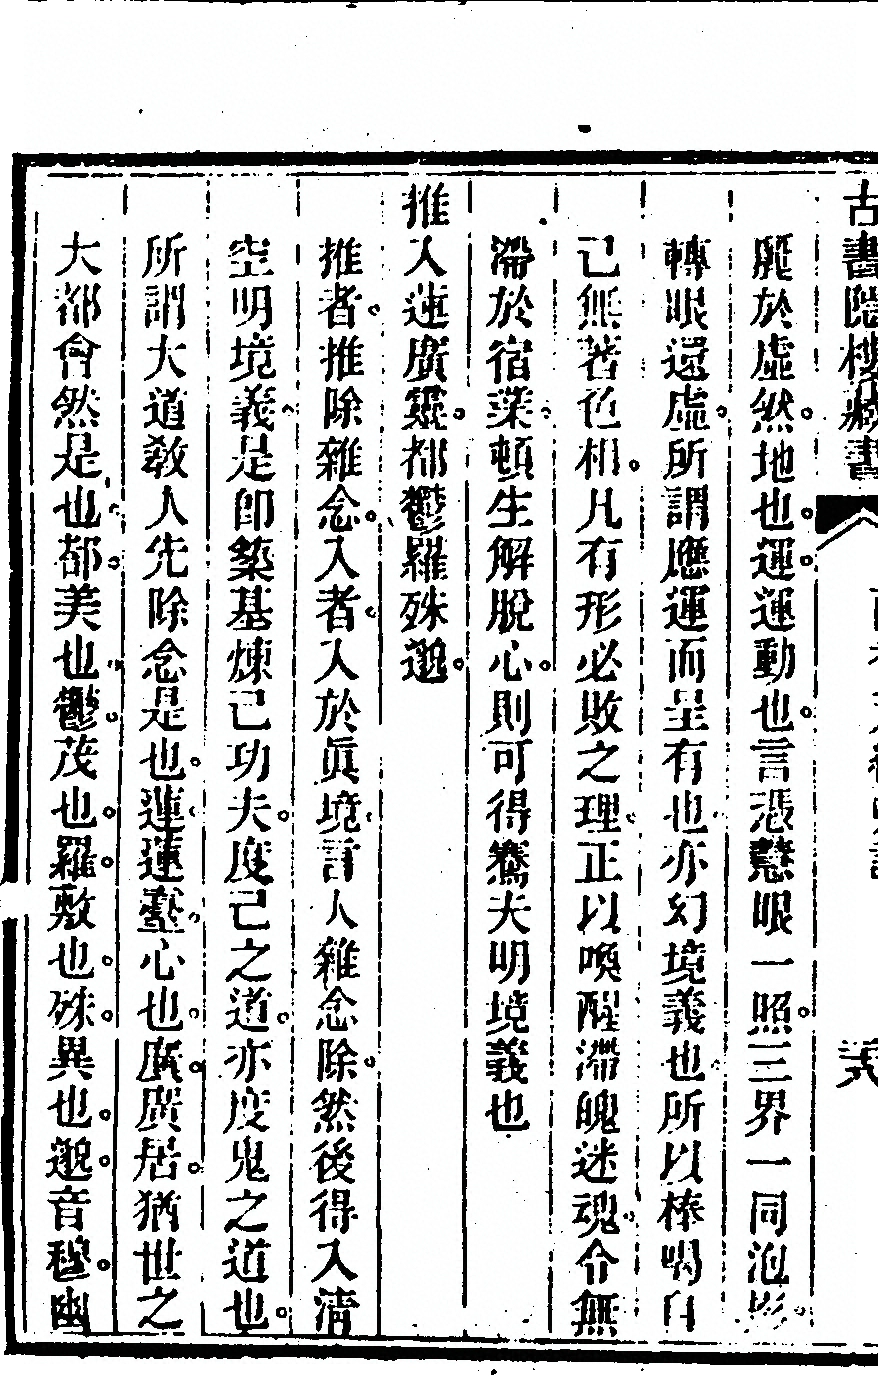 古書隱樓藏書
於虛然。地也。運。運動也。言憑慧眼一照。三界一同泡影。
轉眼還虛。所謂應運而呈有也。亦幻境義也。所以棒喝自
己無著色相。凡有形必敗之理。正以喚醒滯魄迷魂。令無
滯於宿業。頓生解脫心。則可得騫夫明境義也
推入蓮廣靈。都鬱羅殊邈。
推者。推除雜念。入者。入於眞境。言人雜念除。然後得入清
空明境義。是卽築基煉己功夫。度己之道。亦度鬼之道也。
所謂大道教人先除念是也。蓮。蓮臺。心也。廣。廣居。猶世之
大都會然是也。都。美也。鬱。茂也。羅。敷也。殊。異也。邈。音穆。幽